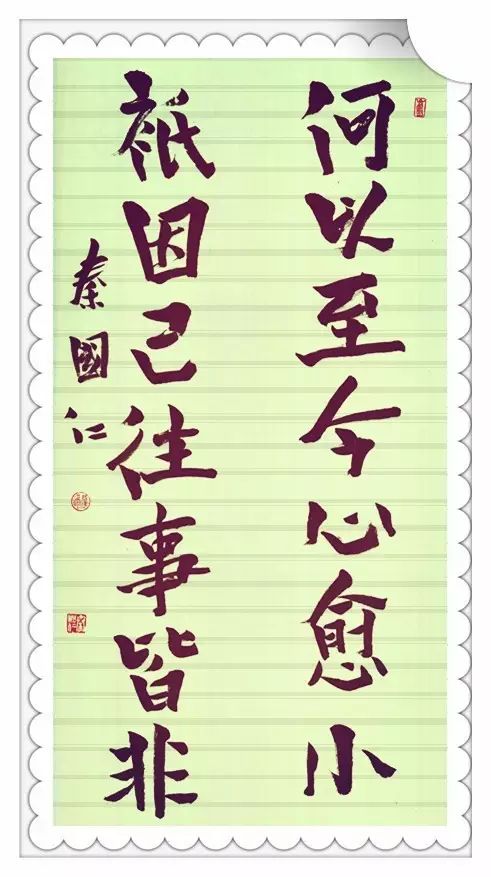 何以至今心愈小
祇因已往事皆非
秦國仁